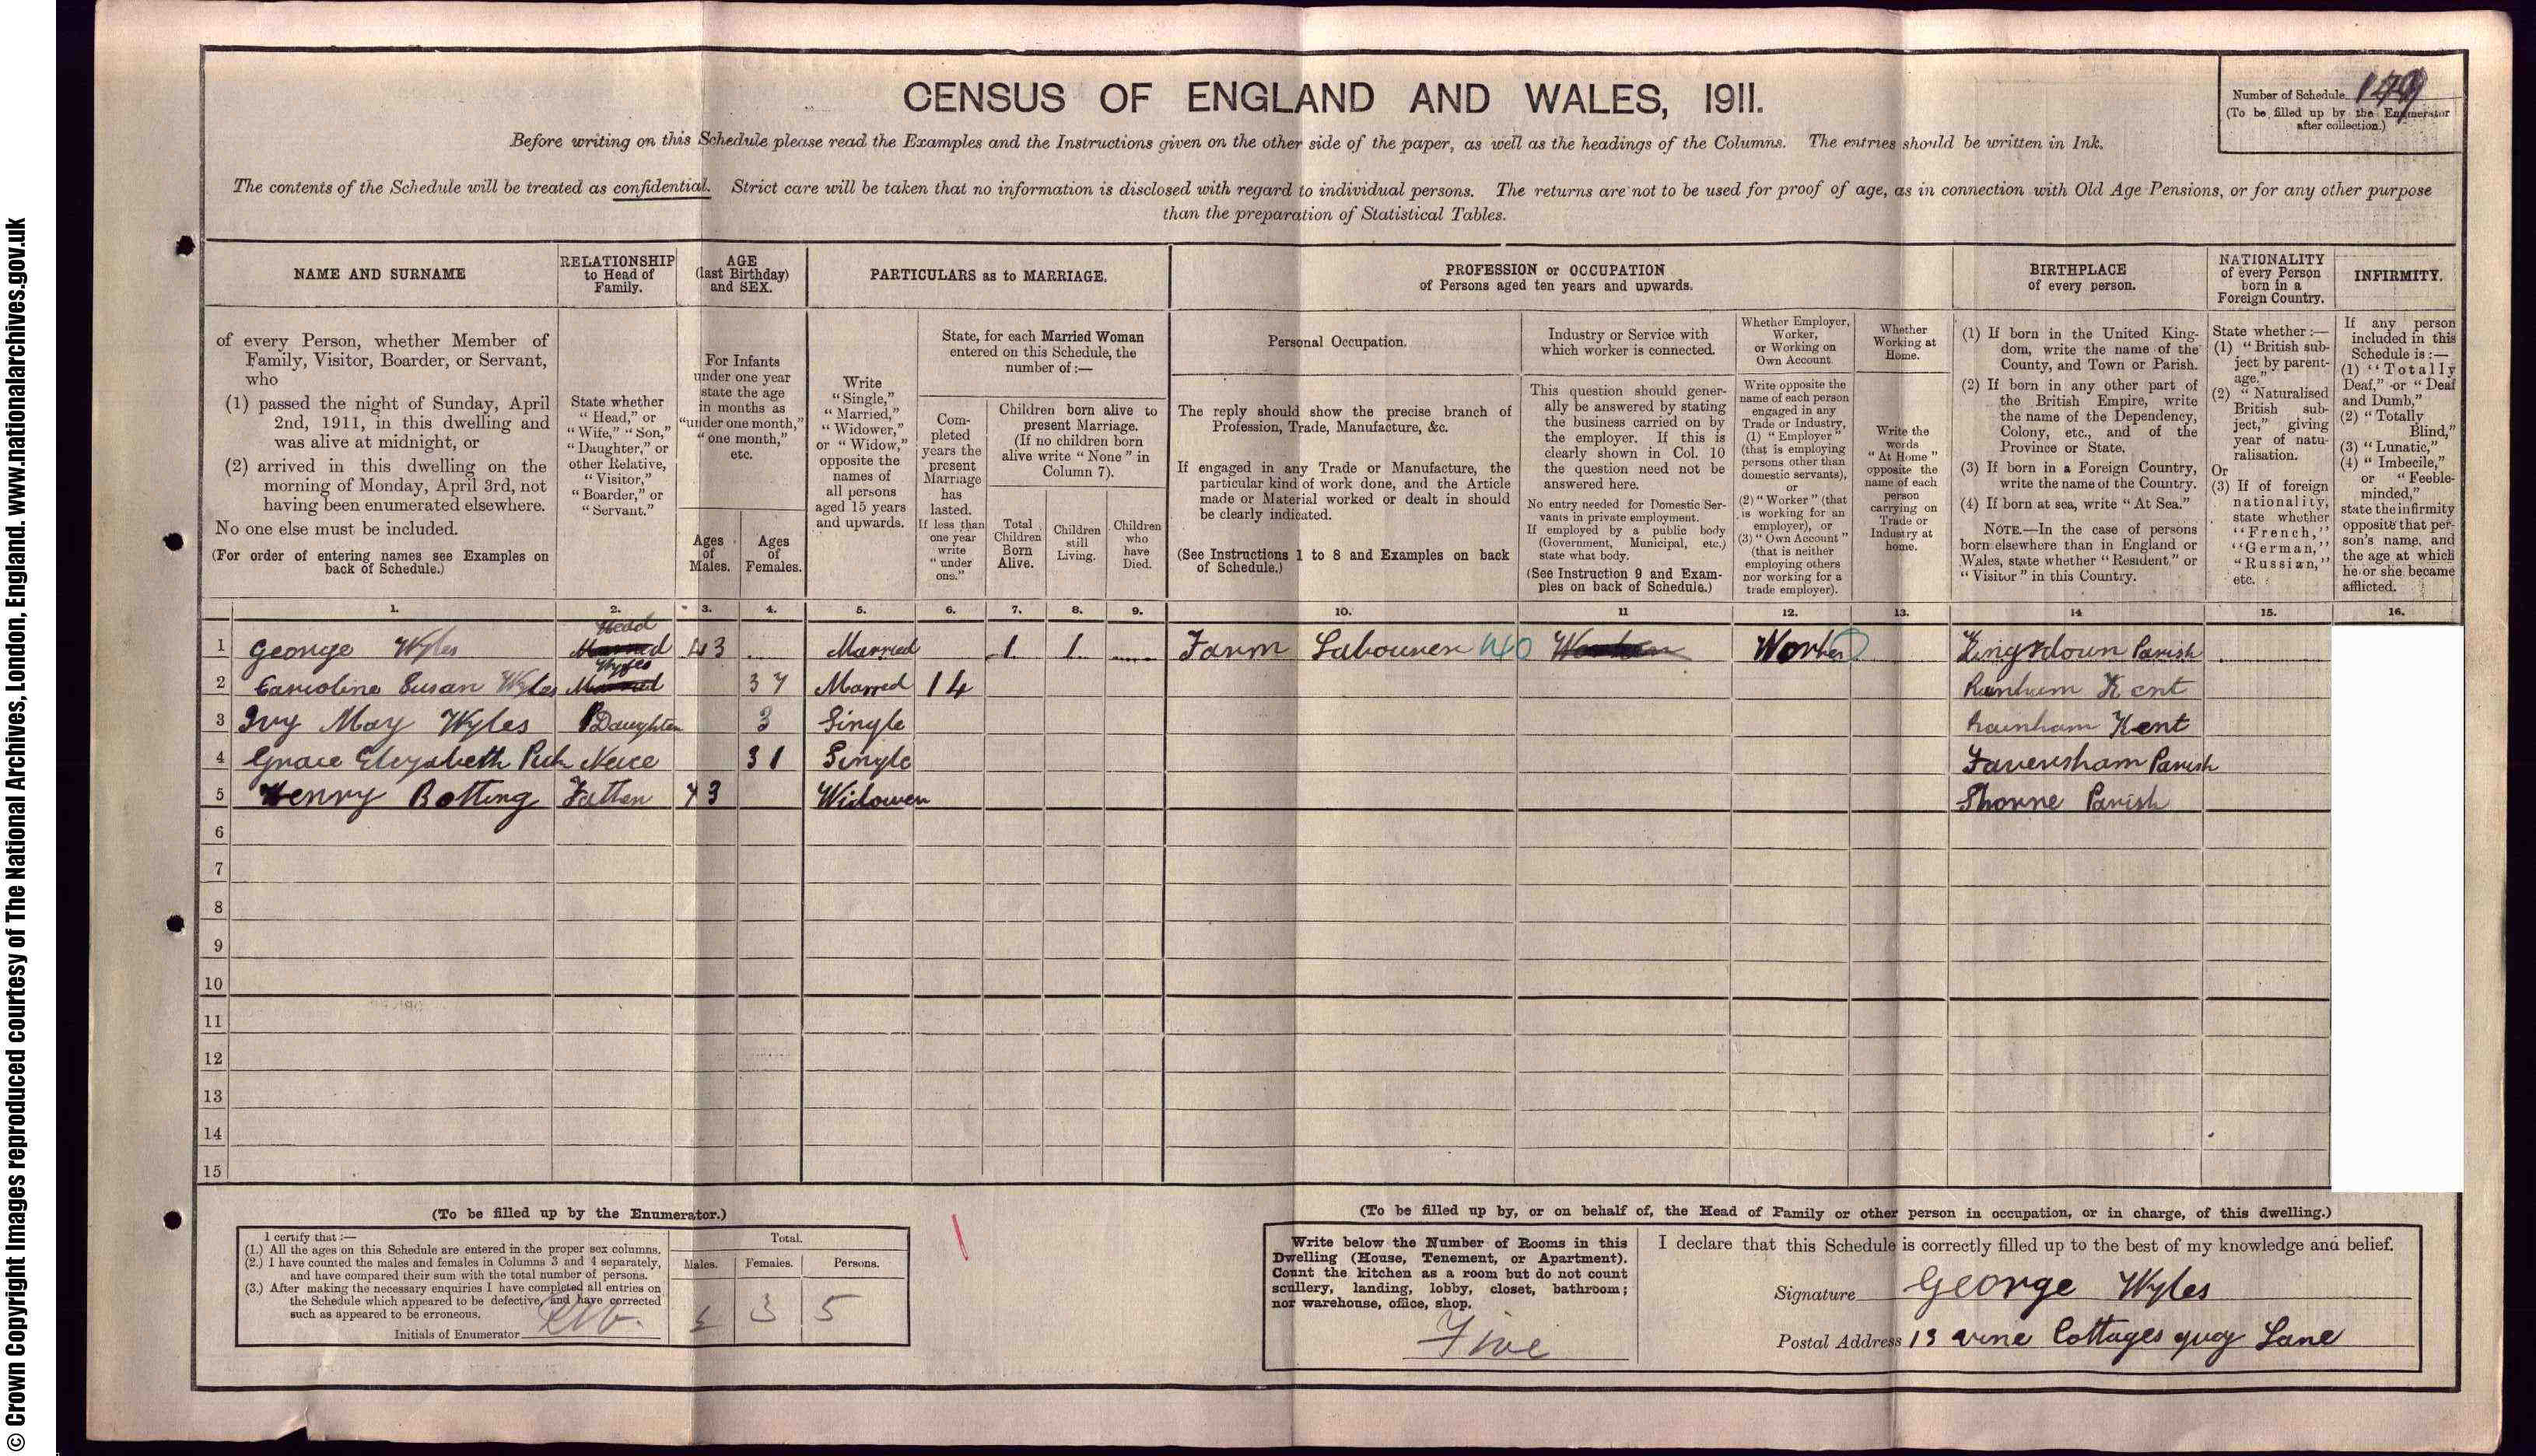 © Crown Copyright Images reproduced courtesy of The National Archives, London, England. www.nationalarchives.gov.uk
CENSUS OF ENGLAND AND WALES, 1911.
Number of Schedule
(To be filled up by the Enumerator
after collection.)
Before writing on this Schedule please read the Examples and the Instructions given on the other side of the paper, as well as the headings of the Columns. The entries should be written in Ink.
The contents of the Schedule will be treated as confidential. Strict care will be taken that no information is disclosed with regard to individual persons. The returns are not to be used for proof of age, as in connection with Old Age Pensions, or for any other purpose
than the preparation of Statistical Tables.
NAME AND SURNAME
of every Person, whether Member of
Family, Visitor, Boarder, or Servant,
who
(1) passed the night of Sunday, April
2nd, 1911, in this dwelling and
was alive at midnight, or
(2) arrived in this dwelling on the
morning of Monday, April 3rd, not
having been enumerated elsewhere.
No one else must be included.
(For order of entering names see Examples on
back of Schedule.)
RELATIONSHIP
to Head of
Family.
State whether
"Head," or
"Wife," "Son,"
"Daughter," or
other Relative,
"Visitor,"
"Boarder," or
"Servant."
AGE
(last Birthday)
and SEX.
For Infants
under one year
state the age
in months as
"under one month,"
"one month,"
etc.
Ages
of
Males.
Ages
of
Females.
PARTICULARS as to MARRIAGE.
Write
"Single,"
"Married,"
"Widower,"
or "Widow,"
opposite the
names of
all persons
aged 15 years
and upwards.
State, for each Married Woman
entered on this Schedule, the
number of :—
Com-
pleted
years the
present
Marriage
has
lasted.
If less than
one year
write
"under
one."
Children born alive to
present Marriage.
(If no children born
alive write "None" in
Column 7).
Total
Children
Born
Alive.
Children
still
Living.
Children
who
have
Died.
PROFESSION or OCCUPATION
of Persons aged ten years and upwards.
Personal Occupation.
The reply should show the precise branch of
Profession, Trade, Manufacture, &c.
If engaged in any Trade or Manufacture, the
particular kind of work done, and the Article
made or Material worked or dealt in should
be clearly indicated.
(See Instructions 1 to 8 and Examples on back
of Schedule.)
Industry or Service with
which worker is connected.
This question should gener-
ally be answered by stating
the business carried on by
the employer. If this is
clearly shown in Col. 10
the question need not be
answered here.
No entry needed for Domestic Ser-
vants in private employment.
If employed by a public body
(Government, Municipal, etc.)
state what body.
(See Instruction 9 and Exam-
ples on back of Schedule.)
Whether Employer,
Worker,
or Working on
Own Account.
Write opposite the
name of each person
engaged in any
Trade or Industry,
(1) "Employer"
(that is employing
persons other than
domestic servants),
or
(2) "Worker" (that
is working for an
employer), or
(3) "Own Account"
(that is neither
employing others
nor working for a
trade employer).
Whether
Working at
Home.
Write the
words
"At Home"
opposite the
name of each
person
carrying on
Trade or
Industry at
home.
BIRTHPLACE
of every person.
(1) If born in the United King-
dom, write the name of the
County, and Town or Parish.
(2) If born in any other part of
the British Empire, write
the name of the Dependency,
Colony, etc., and of the
Province or State.
(3) If born in a Foreign Country,
write the name of the Country.
(4) If born at sea, write "At Sea."
NOTE.—In the case of persons
born elsewhere than in England or
Wales, state whether "Resident" or
"Visitor" in this Country.
NATIONALITY
of every Person
born in a
Foreign Country.
State whether :—
(1) "British sub-
ject by parent-
age."
(2) "Naturalised
British sub-
ject," giving
year of natu-
ralisation.
Or
(3) If of foreign
nationality,
state whether
"French,"
"German,"
"Russian,"
etc.
INFIRMITY.
If any person
included in this
Schedule is :—
(1) "Totally
Deaf," or "Deaf
and Dumb,"
(2) "Totally
Blind,"
(3) "Lunatic,"
(4) "Imbecile,"
or "Feeble-
minded,"
state the infirmity
opposite that per-
son's name, and
the age at which
he or she became
afflicted.
1. 2. 3. 4. 5. 6. 7. 8. 9. 10. 11 12. 13. 14 15. 16.
Head
1 George Wyles Married 43 Married 1 1 Farm Labourer 440 Worker Worker Kingsdown Parish
Wyfes
2 Carioline Susan Wyles Married 37 Marred 14 Kent
3 Ivy May Wyles Daughter 3 Single Rainham Kent
4 Grace Elezabeth Neice 31 Single Faversham Parish
5 Henry Botting Father 73 Widower Shorne Parish
6
7
8
9
10
11
12
13
14
15
(To be filled up by the Enumerator.)
I certify that :—
(1.) All the ages on this Schedule are entered in the proper sex columns.
(2.) I have counted the males and females in Columns 3 and 4 separately,
and have compared their sum with the total number of persons.
(3.) After making the necessary enquiries I have completed all entries on
the Schedule which appeared to be defective, and have corrected
such as appeared to be erroneous.
Initials of Enumerator
Total.
Males. Females. Persons.
2 3 5
(To be filled up by, or on behalf of, the Head of Family or other person in occupation, or in charge, of this dwelling.)
Write below the Number of Rooms in this
Dwelling (House, Tenement, or Apartment).
Count the kitchen as a room but do not count
scullery, landing, lobby, closet, bathroom;
nor warehouse, office, shop.
Five
I declare that this Schedule is correctly filled up to the best of my knowledge and belief.
Signature George Wyles
Postal Address 13 vine Cottages quay Lane